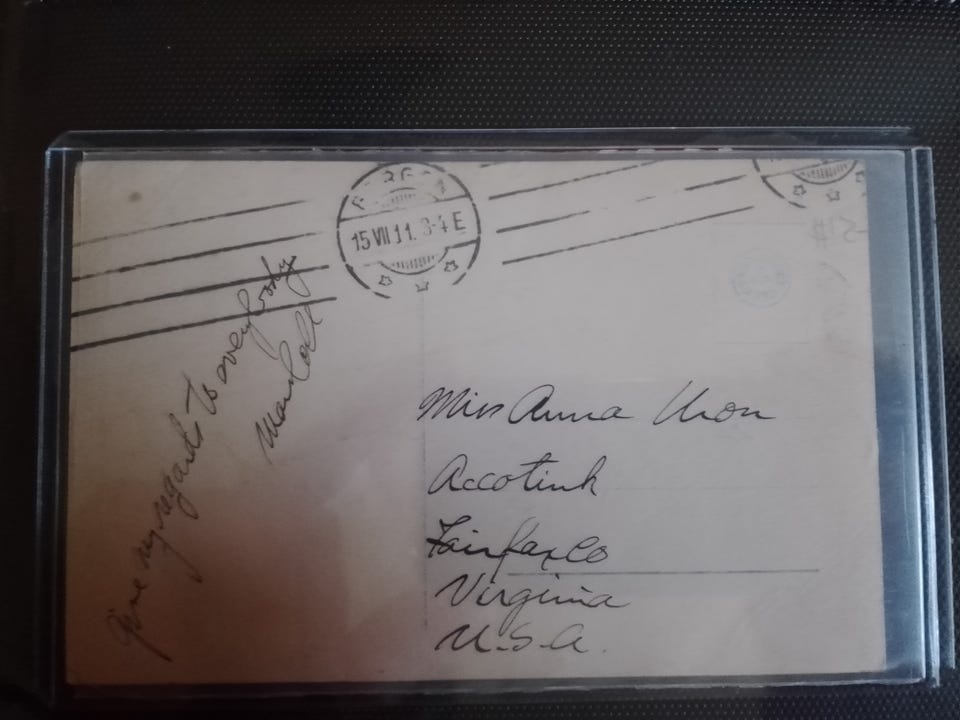 15 VII 11. 3-4 E
Give my regards to everybody
Miss Anna
Accotink
Fairfax Co
Virginia
U.S.A.